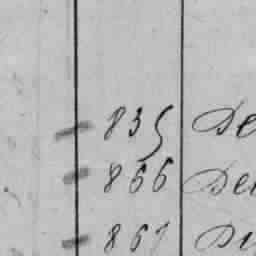 835 De
866 De
867 Di